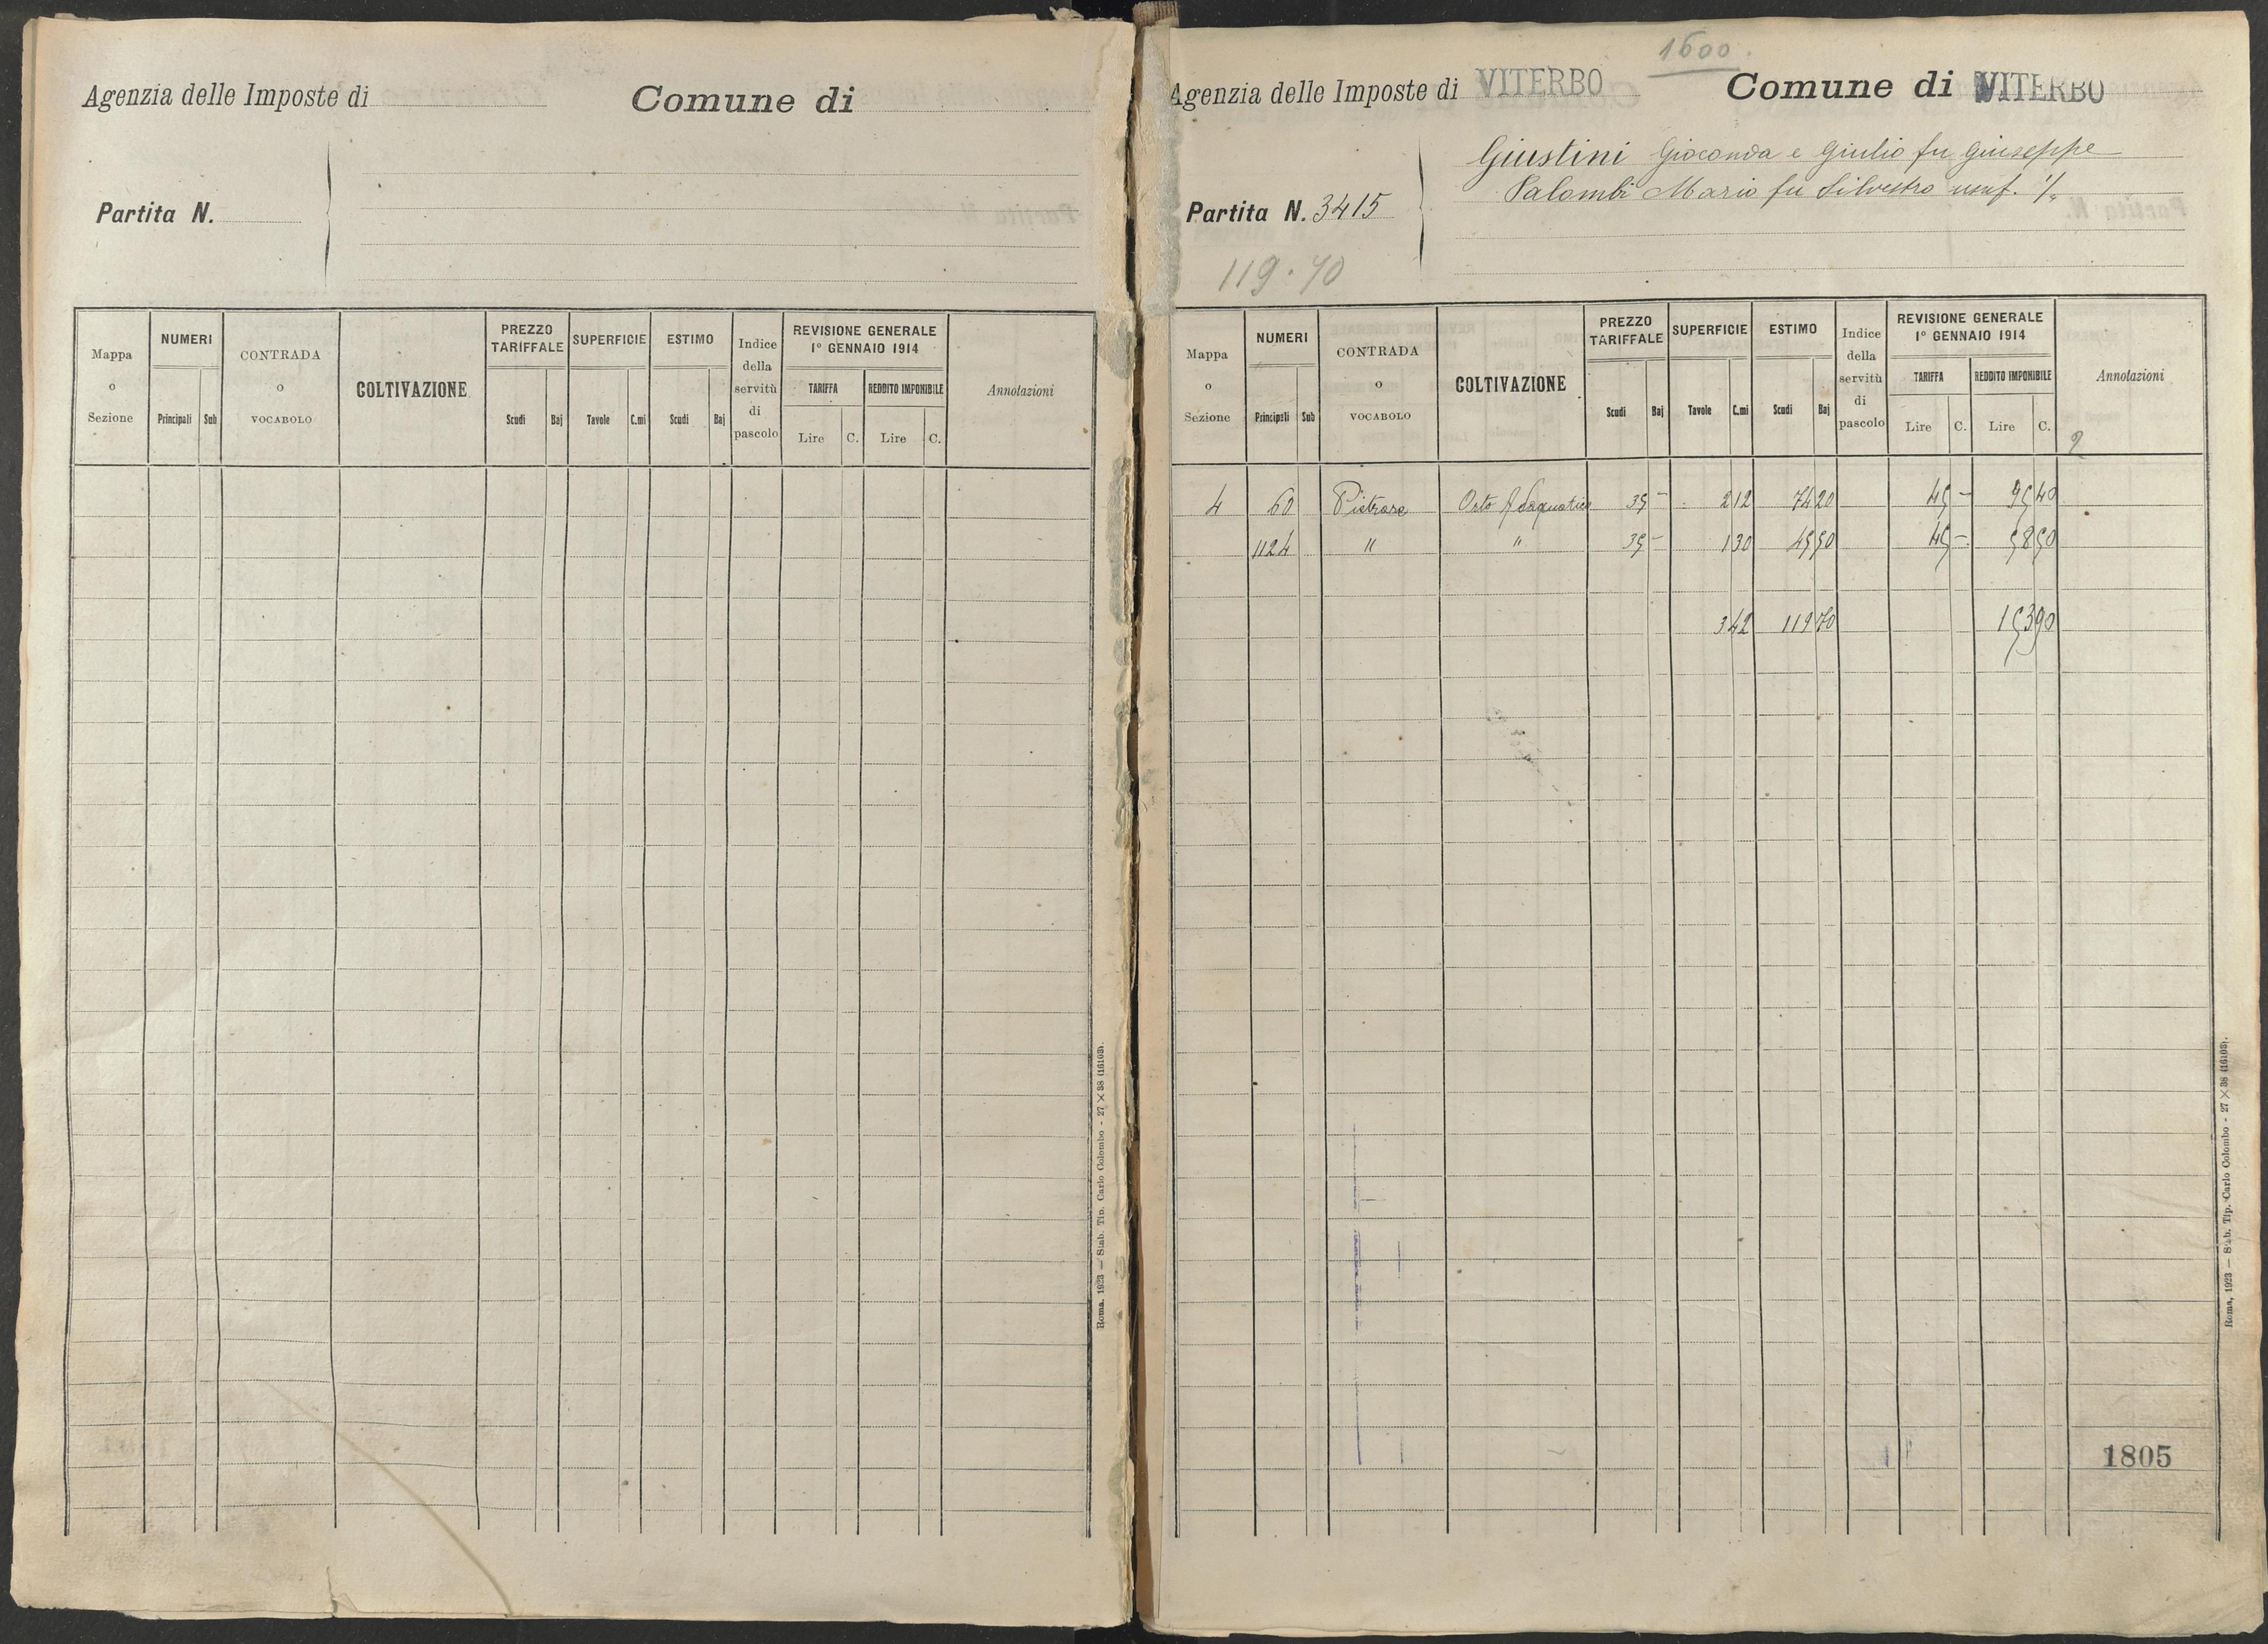 Agenzia delle Imposte di
Comune di
Partita N.
Mappa o Sezione
NUMERI
Principali Sub
CONTRADA o VOCABOLO
COLTIVAZIONE
PREZZO TARIFFALE
Scudi Baj
SUPERFICIE
Tavole C.mi
ESTIMO
Scudi Baj
Indice della servitù di pascolo
REVISIONE GENERALE
1° GENNAIO 1914
TARIFFA REDDITO IMPONIBILE
Lire C. Lire C.
Annotazioni
Roma, 1923 — Stab. Tip. Carlo Colombo - 27 × 38 (16103).
1600.
Agenzia delle Imposte di VITERBO
Comune di VITERBO
Giustini Gioconda e Giulio fu Giuseppe
Palombi Maria fu Silvestro usuf.
Partita N. 3415
119.70
Mappa o Sezione
NUMERI
Principali Sub
CONTRADA o VOCABOLO
COLTIVAZIONE
PREZZO TARIFFALE
Scudi Baj
SUPERFICIE
Tavole C.mi
ESTIMO
Scudi Baj
Indice della servitù di pascolo
REVISIONE GENERALE
1° GENNAIO 1914
TARIFFA REDDITO IMPONIBILE
Lire C. Lire C.
Annotazioni
2
4 60 Pietrare Orto Adacquativo 35 - 2 12 74 20 45 - 95 40
1124 " " 35 - 1 30 45 50 45 - 58 50
3 42 119 70 153 90
1805
Roma, 1923 — Stab. Tip. Carlo Colombo - 27 × 38 (16103).